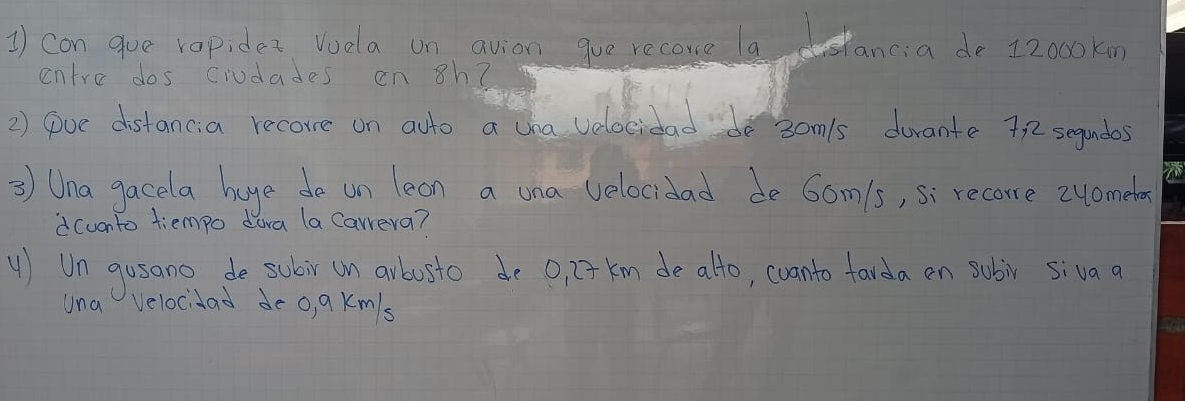 1) Con que rapidez vuela un avion que recorre la distancia de 12000 km
entre dos ciudades en 8h?
2) Que distancia recorre un auto a una velocidad de 30m/s durante 7,2 segundos
3) Una gacela huye de un leon a una velocidad de 60m/s, si recorre 240metros
¿cuanto tiempo dura la carrera?
4) Un gusano de subir un arbusto de 0,27 km de alto, cuanto tarda en subir si va a
una velocidad de 0,9 km/s